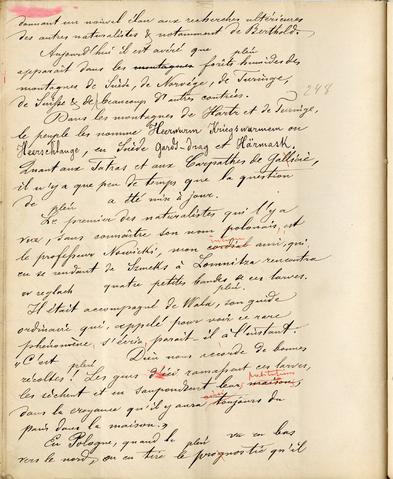 donnant un nouvel élan aux recherches ultérieures
des autres naturalistes & notamment de Berthold.
Aujourd'hui il est avéré que pleń
apparait dans les montagnes forêts humides des
montagnes de Suède, de Norvège, de Turinge,
de Suisse & de beaucoup d'autres contrées.
248
Dans les montagnes de Hartz et de Turinge,
le peuple les nomme Heerwurm Kriegswurm ou
Heerschlange, en Suède Gards-drag et Härmask.
Quant aux Tatras et aux Carpathes de Gallicie,
il n'y a que peu de temps que la question
de pleń a été mis à jour.
Le premier des naturalistes qui l'y a
vu, sans connaître son nom polonais, est
le professeur Nowicki, mon cordial ami, qui
en se rendant de à Lomnitza rencontra
quatre petites bandes de ces larves.
pleń.
Il était accompagné de Wala, son guide
ordinaire qui, appelé pour voir ce rare
phénomène, s'écria, parait-il à l'instant.
"C'est pleń Dieu nous accorde de bonnes
récoltes! Les gens d'ici ramassent ces larves,
les sèchent et en saupoudrent leurs maisons,
dans la croyance qu'il y aura toujours du
pain dans la maison."
En Pologne, quand le pleń va en bas
vers le nord, on en tire le prognostic qu'il